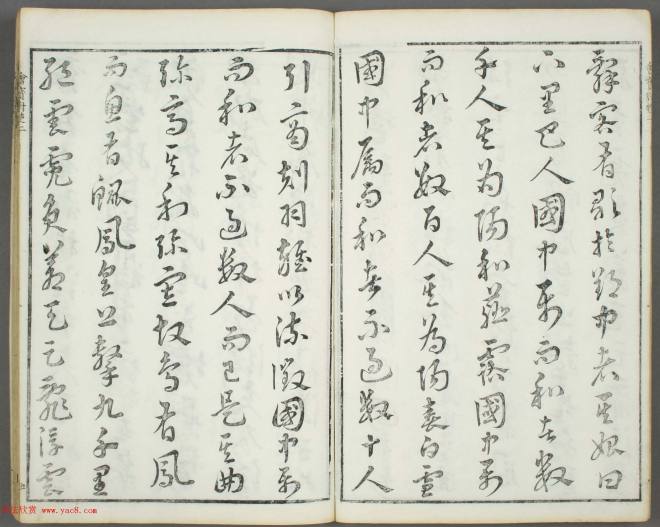 辭客有歌於郢中者其始曰
下里巴人國中屬而和者數
千人其為陽和薤露國中屬
而和者數百人其為陽春白雪
國中屬而和者不過數十人
引商刻羽雜以流徵國中屬
而和者不過數人而已是其曲
彌高其和彌寡故鳥有鳳
而魚有鯤鳳皇上擊九千里
絕雲霓負蒼天足亂浮雲
书法欣赏 www.yac8.com